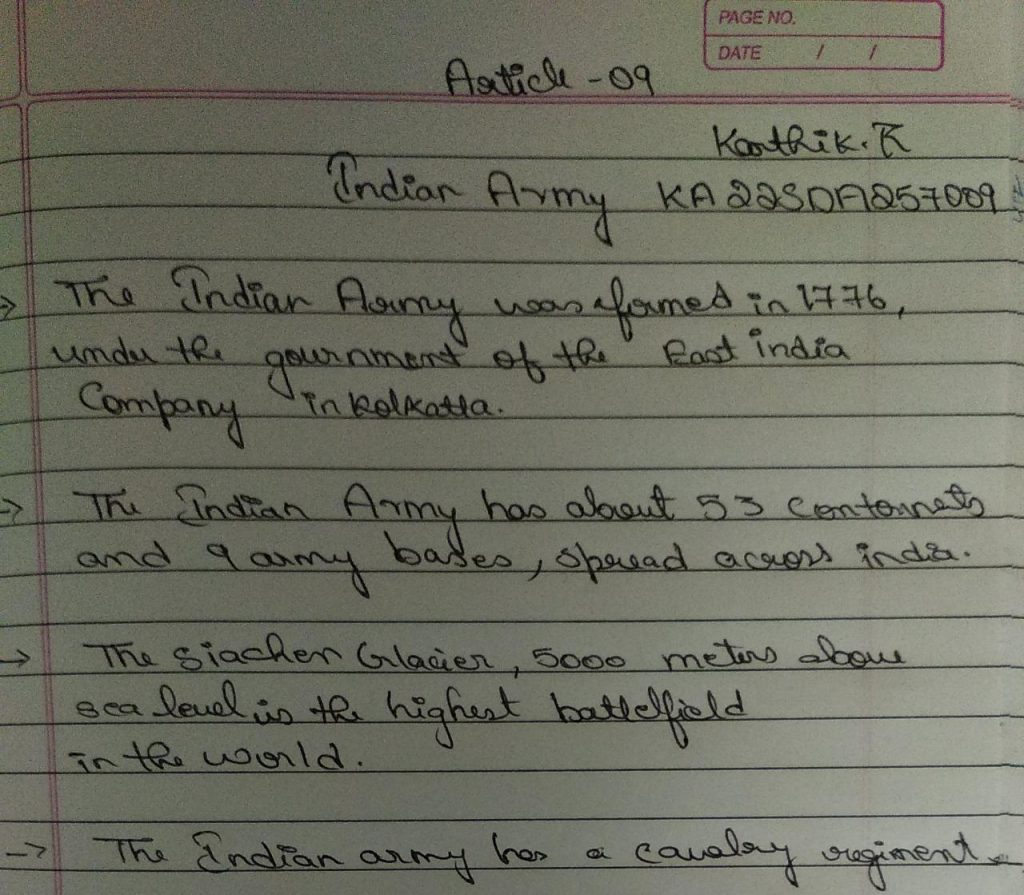 PAGE NO.
DATE / /
Article - 09
Karthik. K
Indian Army KA22SDA257009
→ The Indian Army was formed in 1776,
under the government of the East india
Company in Kolkatta.
→ The Indian Army has about 53 Contonnets
and 9 army bases, spread across india.
→ The Siachen Glacier, 5000 meters above
sea level is the highest battlefield
in the world.
→ The Indian army has a cavalry regiment